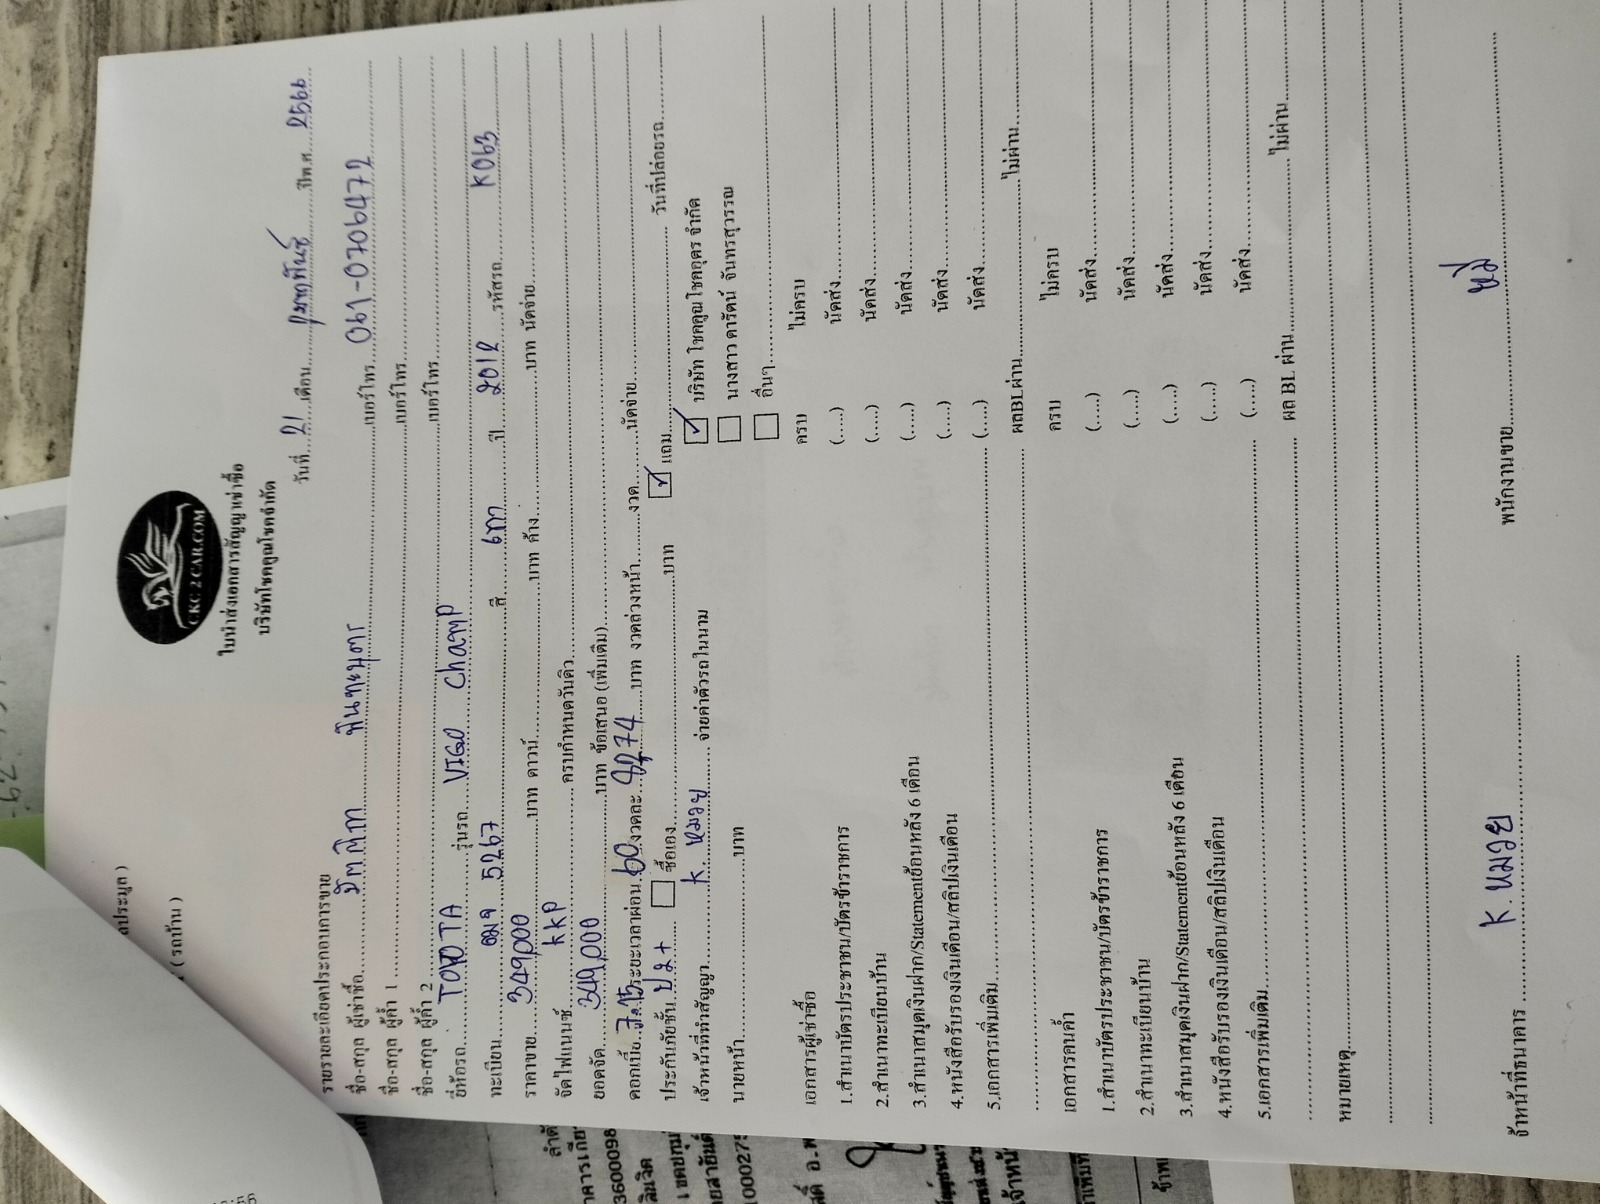 CKC 2 CAR.COM
ใบนำส่งเอกสารสัญญาเช่าซื้อ
บริษัทโชคคูณโชคจำกัด
วันที่...21...เดือน...กุมภาพันธ์...ปีพ.ศ...2566
รายรายละเอียดประกอบการขาย
ชื่อ-สกุล ผู้เช่าซื้อ...เบอร์โทร...061-0706472
ชื่อ-สกุล ผู้ค้ำ 1...เบอร์โทร...
ชื่อ-สกุล ผู้ค้ำ 2...เบอร์โทร...
ยี่ห้อรถ...TOYOTA...รุ่นรถ...VIGO Champ
ทะเบียน...5267...สี...เทา...ปี...2012...รหัสรถ...K063
ราคาขาย...349,000...บาท ดาวน์...บาท ค้าง...บาท นัดจ่าย...
จัดไฟแนนซ์...KKP...ครบกำหนดวันคิว...
ยอดจัด...349,000...บาท ข้อเสนอ (เพิ่มเติม)...
ดอกเบี้ย...7.15...ระยะเวลาผ่อน...60...งวดละ...8,274...บาท งวดล่วงหน้า...งวด...นัดจ่าย...
ประกันภัยชั้น...ป2+... ☐ ซื้อเอง...บาท ☑ แถม... วันที่ปล่อยรถ...
เจ้าหน้าที่ทำสัญญา...K. หมวย... จ่ายค่าตัวรถในนาม ☑ บริษัท โชคคูณโชคฤคร จำกัด
☐ นางสาว ดารัตน์ จันทรสุวรรณ
นายหน้า...บาท ☐ อื่นๆ...
เอกสารผู้เช่าซื้อ ครบ ไม่ครบ
1.สำเนาบัตรประชาชน/บัตรข้าราชการ (....) นัดส่ง...
2.สำเนาทะเบียนบ้าน (....) นัดส่ง...
3.สำเนาสมุดเงินฝาก/Statementย้อนหลัง 6 เดือน (....) นัดส่ง...
4.หนังสือรับรองเงินเดือน/สลิปเงินเดือน (....) นัดส่ง...
5.เอกสารเพิ่มเติม... (....) นัดส่ง...
ผลBLผ่าน...ไม่ผ่าน...
เอกสารคนค้ำ ครบ ไม่ครบ
1.สำเนาบัตรประชาชน/บัตรข้าราชการ (....) นัดส่ง...
2.สำเนาทะเบียนบ้าน (....) นัดส่ง...
3.สำเนาสมุดเงินฝาก/Statementย้อนหลัง 6 เดือน (....) นัดส่ง...
4.หนังสือรับรองเงินเดือน/สลิปเงินเดือน (....) นัดส่ง...
5.เอกสารเพิ่มเติม... (....) นัดส่ง...
ผล BL ผ่าน...ไม่ผ่าน...
หมายเหตุ...
จ้าหน้าที่ธนาคาร...K. หมวย... พนักงานขาย...
( รถบ้าน )